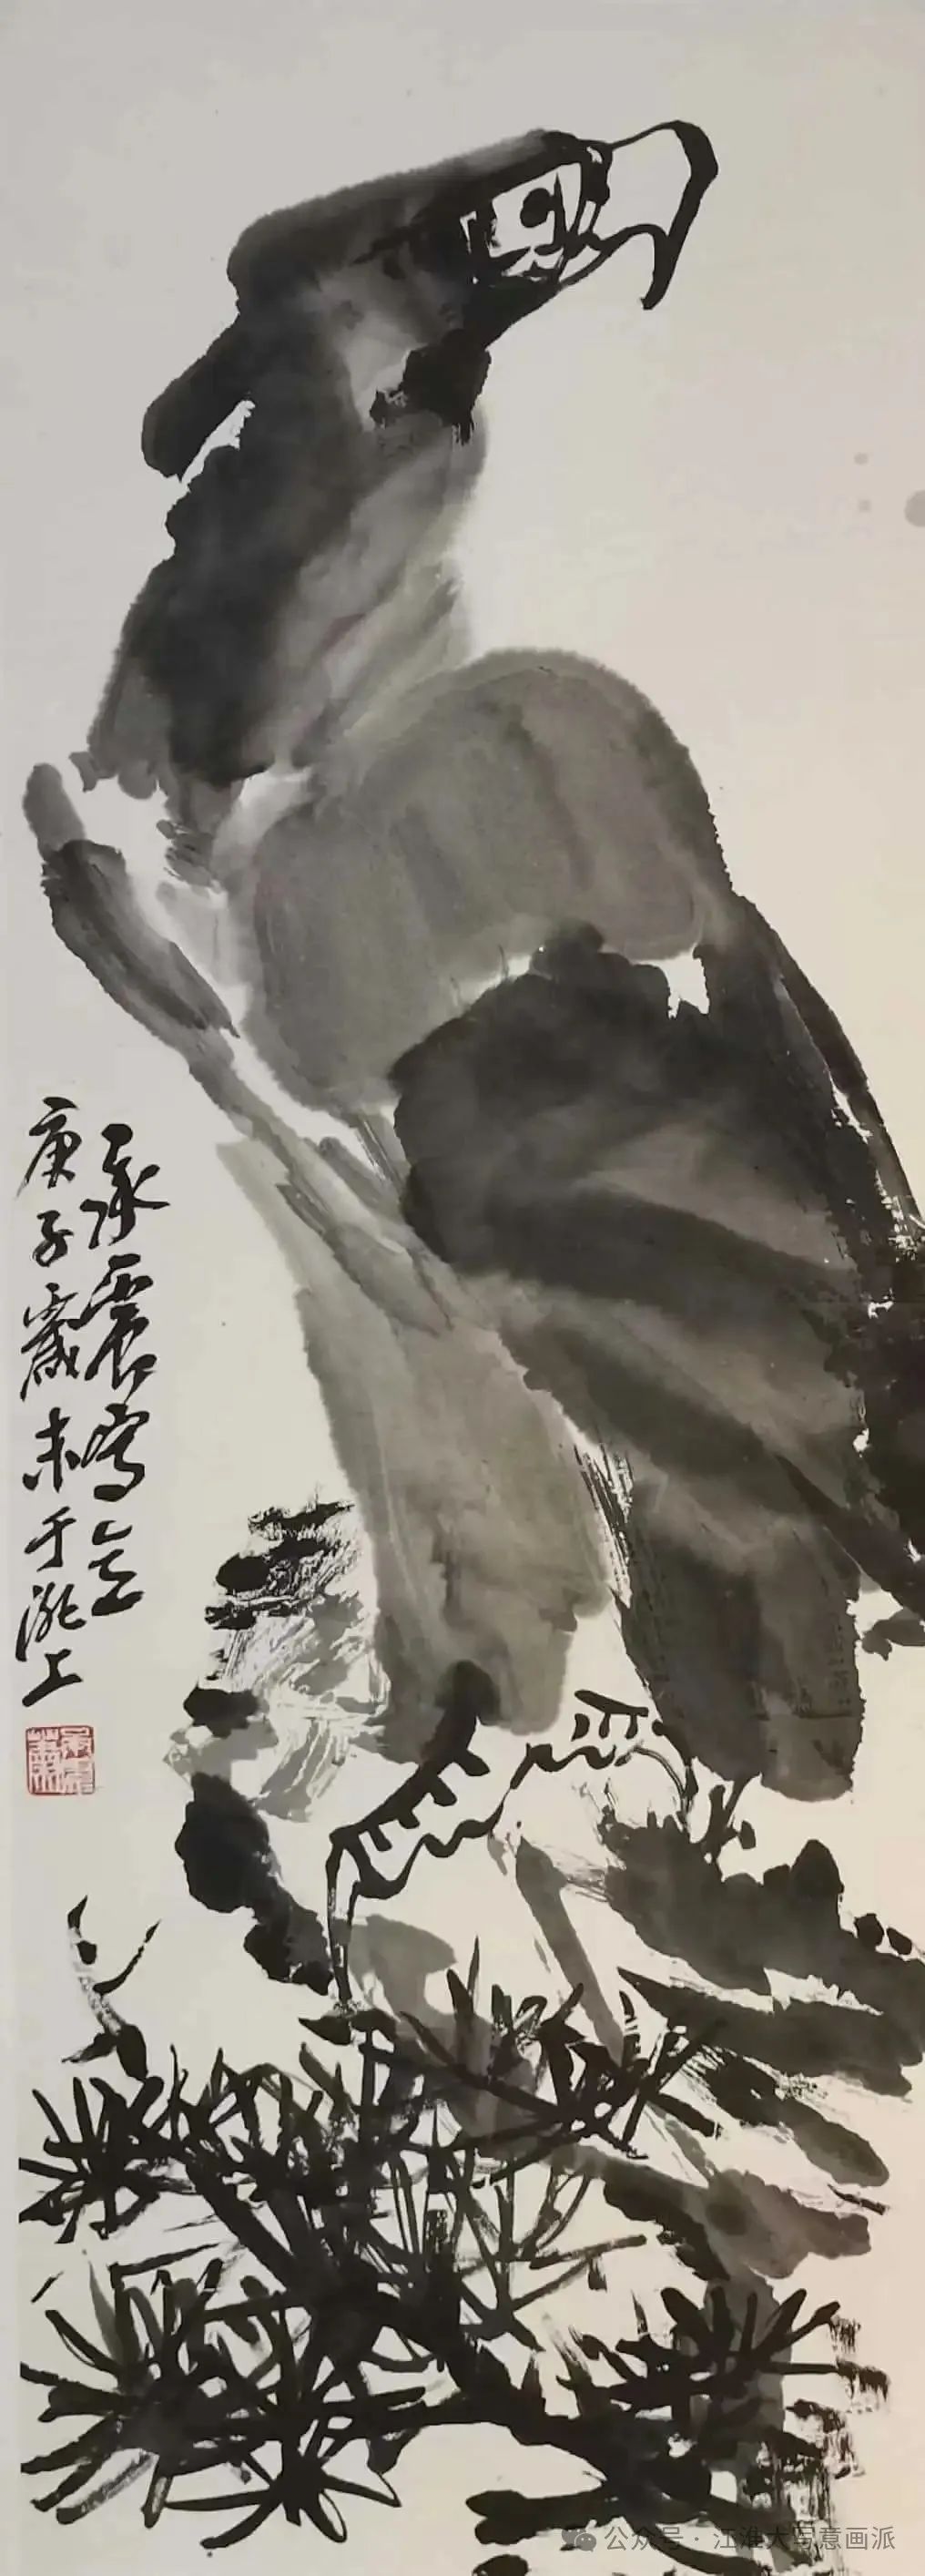 承震寫
庚子歲末于淝上
公众号 · 江淮大写意画派